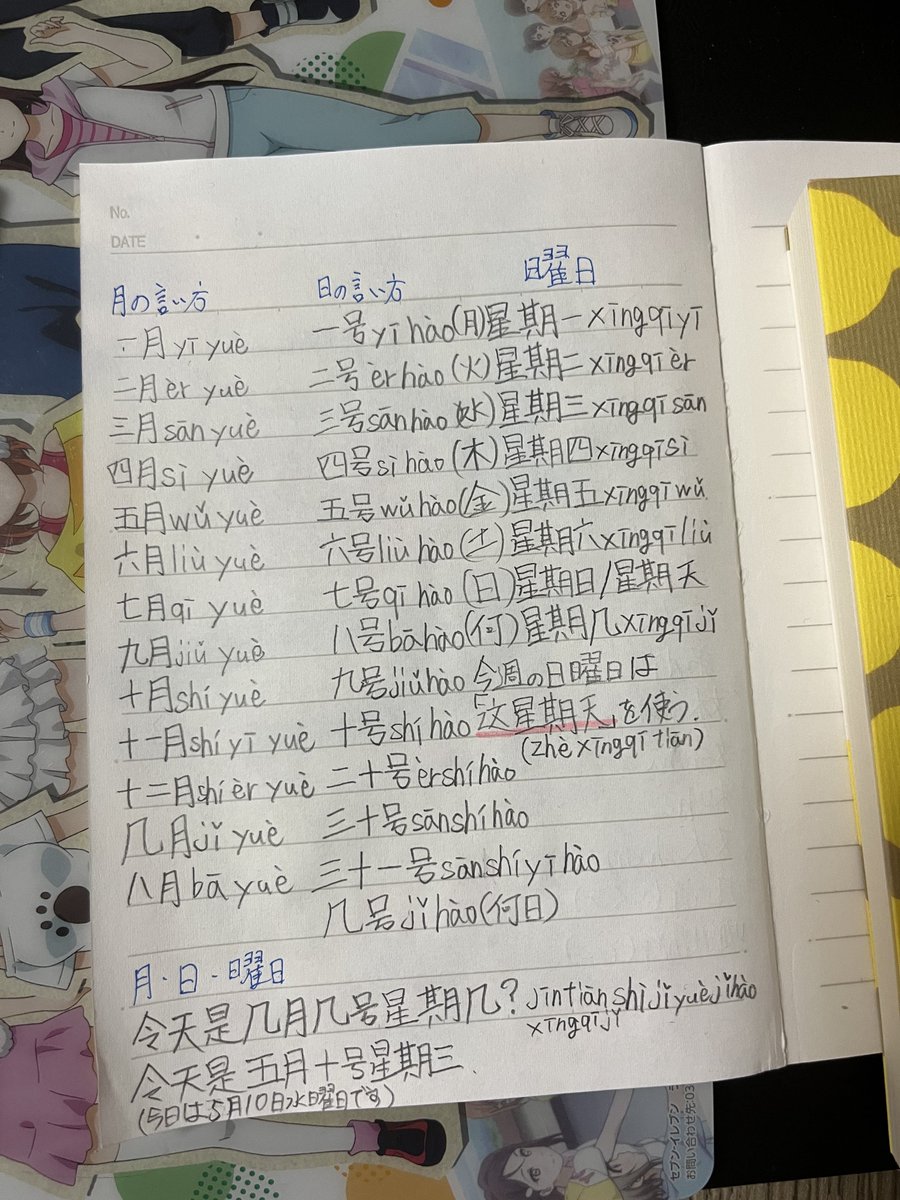 No.
DATE
月の言い方 日の言い方 日曜日
一月yī yuè 一号yī hào(月)星期一xīngqīyī
二月èr yuè 二号èr hào(火)星期二xīngqīèr
三月sān yuè 三号sānhào(水)星期三xīngqīsān
四月sì yuè 四号sì hào(木)星期四xīngqīsì
五月wǔ yuè 五号wǔ hào(金)星期五xīngqīwǔ
六月liù yuè 六号liù hào(土)星期六xīngqīliù
七月qī yuè 七号qī hào(日)星期日/星期天
九月jiǔ yuè 八号bāhào(何)星期几xīngqījǐ
十月shí yuè 九号jiǔhào 今週の日曜日は
十一月shí yī yuè 十号shí hào「这星期天」を使う.
(zhè xīngqī tiān)
十二月shí èr yuè 二十号èrshíhào
几月jǐ yuè 三十号sānshíhào
八月bā yuè 三十一号sānshíyīhào
几号jǐhào(何日)
月・日・曜日
今天是几月几号星期几? jīntiān shì jǐ yuè jǐhào
xīngqījǐ
今天是五月十号星期三.
(今日は5月10日水曜日です)
セブン-イレブン
お問い合わせ先:03